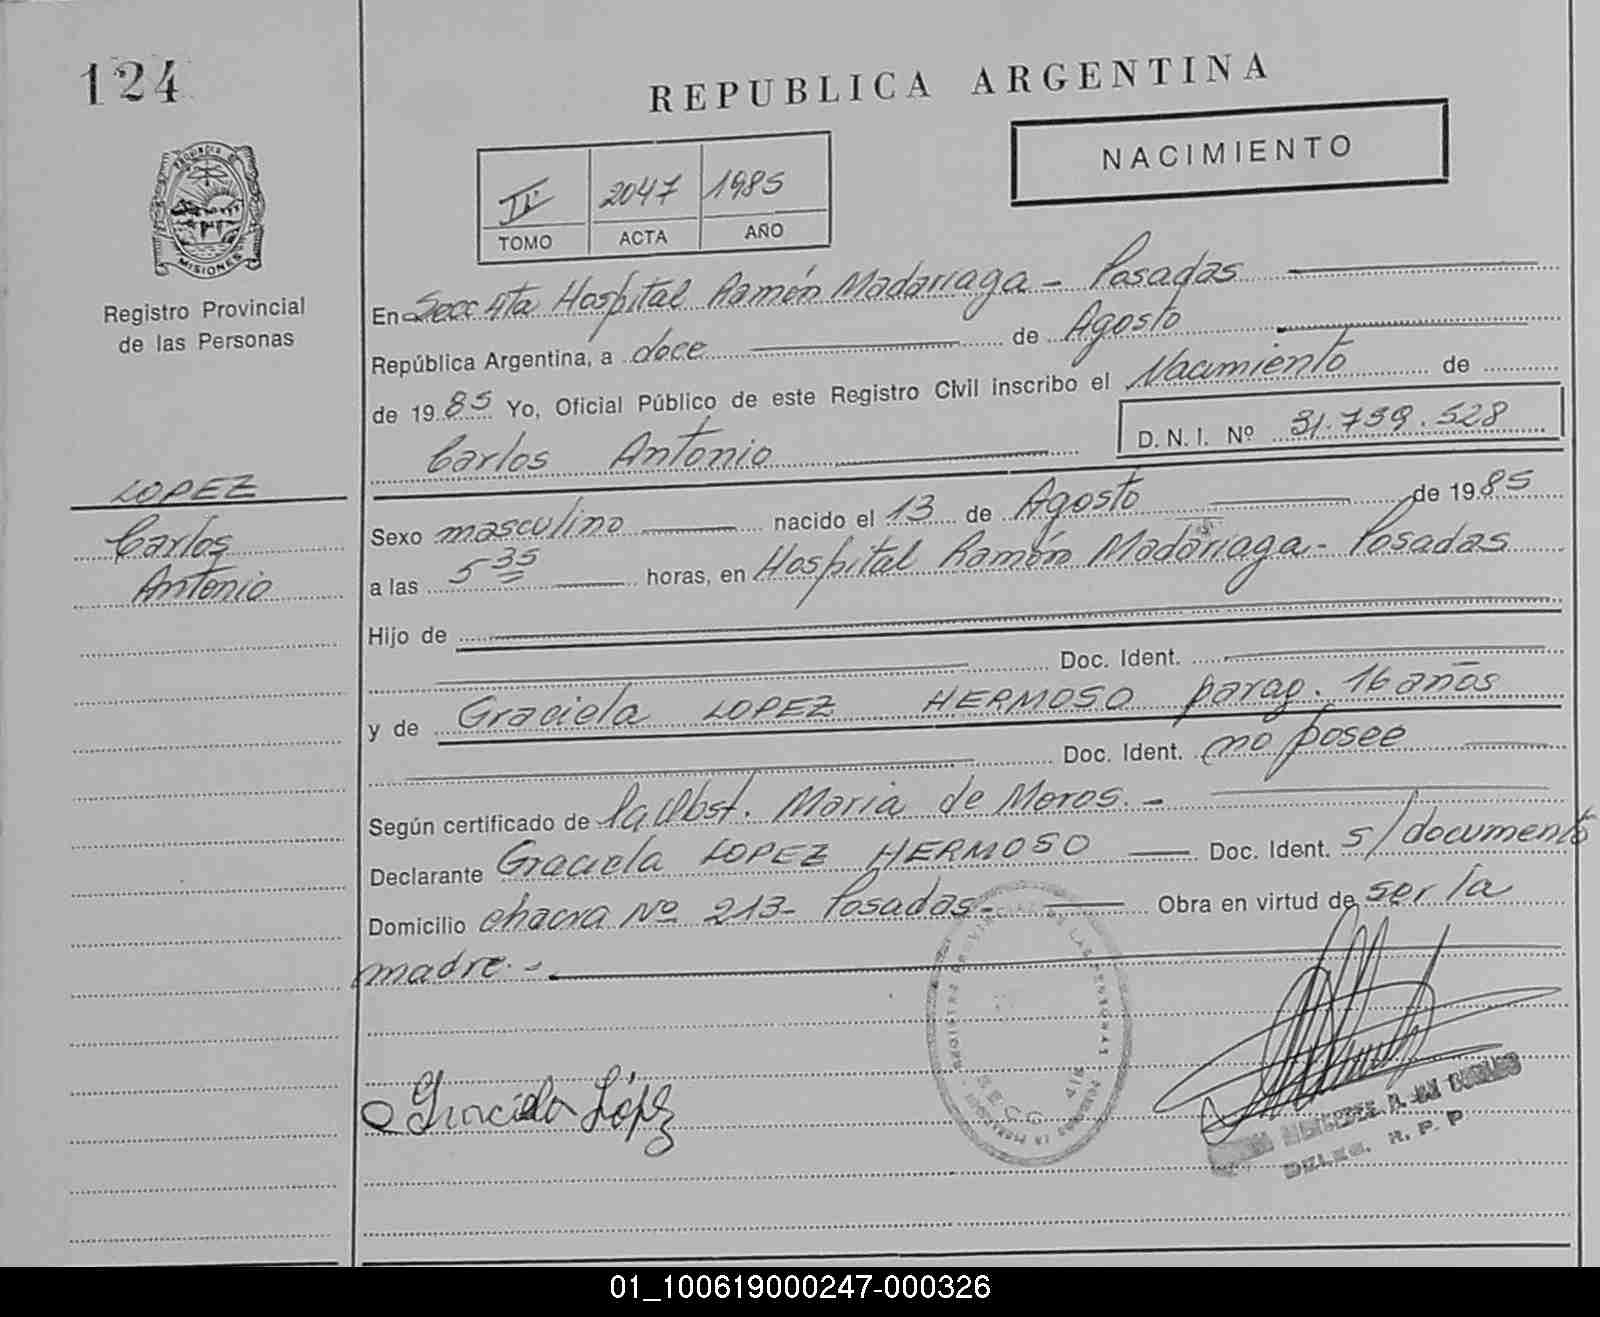 124
REPUBLICA ARGENTINA
NACIMIENTO
II 2047 1985
TOMO ACTA AÑO
PROVINCIA DE
MISIONES
Registro Provincial
de las Personas
En Secc 4ta Hospital Ramón Madarriaga - Posadas
República Argentina, a doce de Agosto
de 1985 Yo, Oficial Público de este Registro Civil inscribo el Nacimiento de
Carlos Antonio D. N. I. Nº 31.739.528
LOPEZ
Carlos
Antonio
Sexo masculino nacido el 13 de Agosto de 1985
a las 5 35 horas, en Hospital Ramón Madarriaga - Posadas
Hijo de
Doc. Ident.
y de Graciela LOPEZ HERMOSO parag. 16 años
Doc. Ident. no posee
Según certificado de Obst. Maria de Moros. -
Declarante Graciela LOPEZ HERMOSO Doc. Ident. s/documento
Domicilio chacra Nº 213 - Posadas - Obra en virtud de ser la
madre. -
SECC 4ta
Graciela López
DELEG. R. P. P
01_100619000247-000326